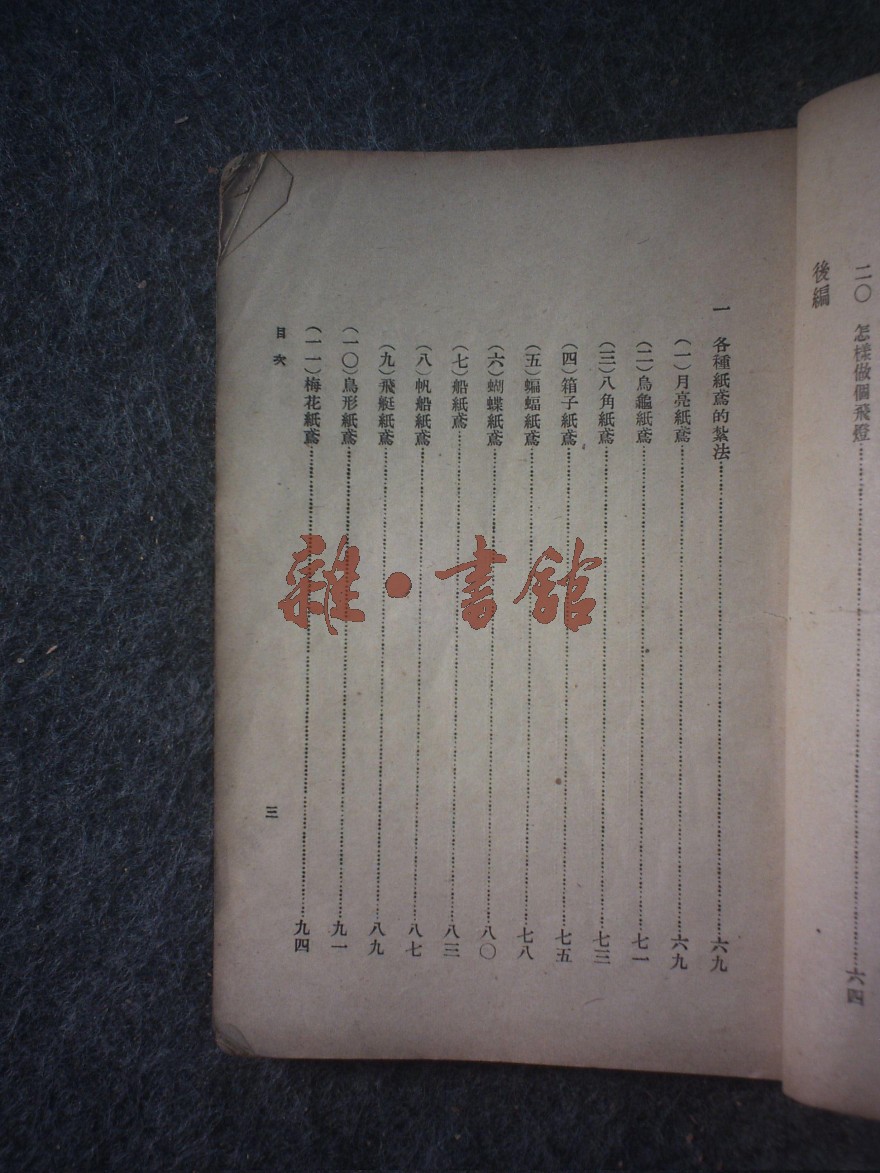 二〇　怎樣做個飛燈……六四
後編
一　各種紙鳶的紮法……六九
（一）月亮紙鳶……六九
（二）烏龜紙鳶……七一
（三）八角紙鳶……七三
（四）箱子紙鳶……七五
（五）蝙蝠紙鳶……七八
（六）蝴蝶紙鳶……八〇
（七）船紙鳶……八三
（八）帆船紙鳶……八七
（九）飛艇紙鳶……八九
（一〇）鳥形紙鳶……九一
（一一）梅花紙鳶……九四
目次
三
雜·書館